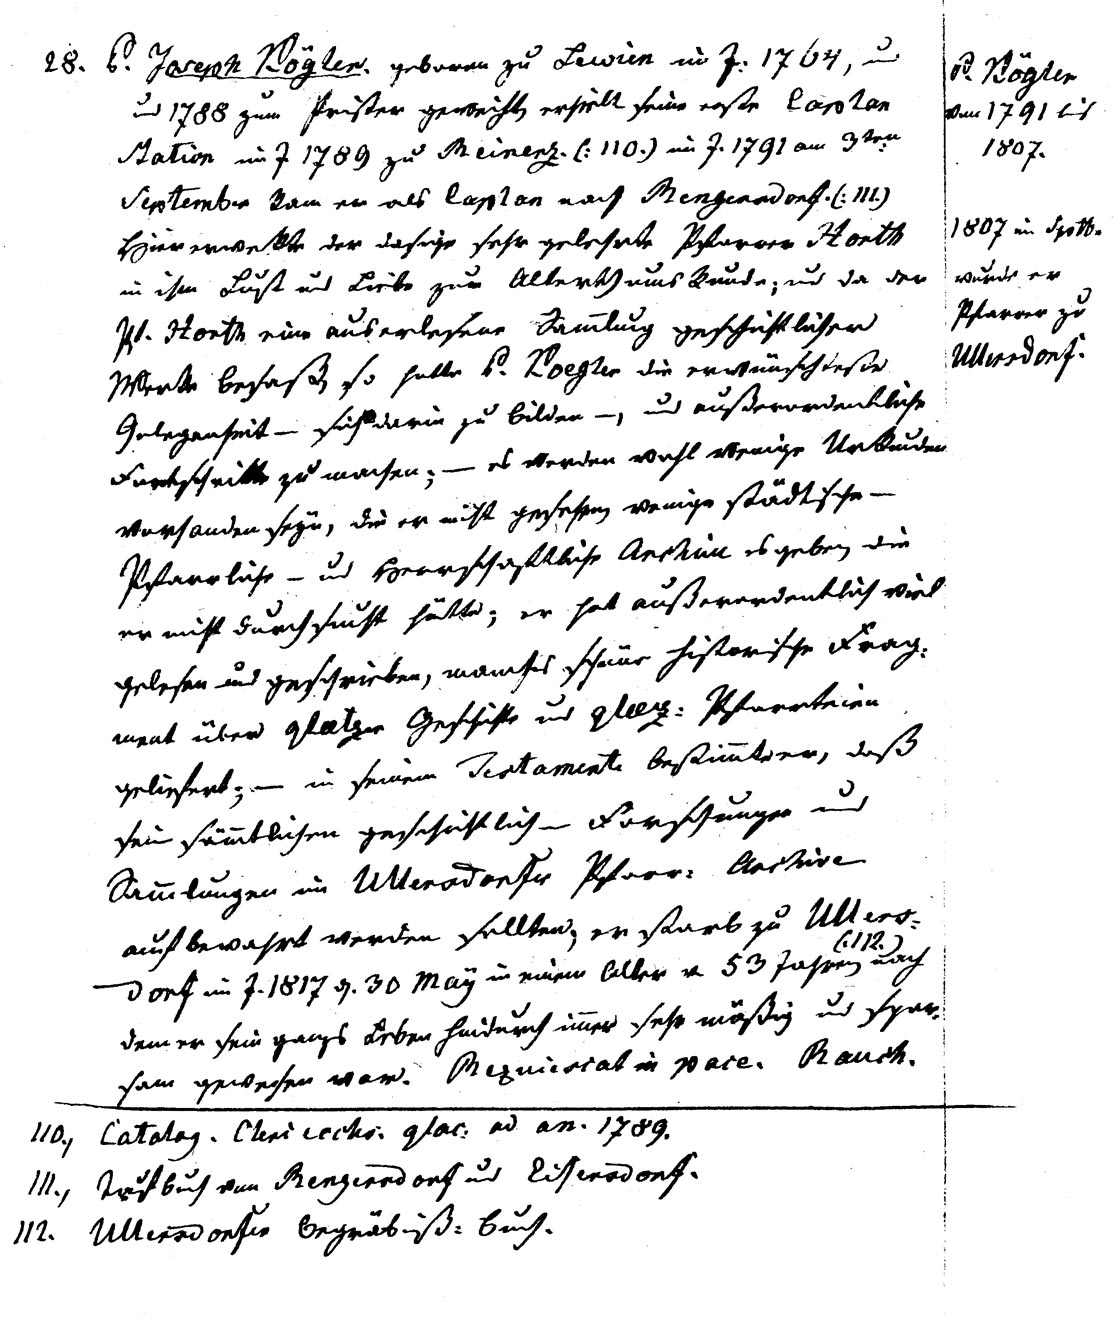 28. P. Joseph Kögler. geboren zu Lewien im J. 1764, u
und 1788 zum Prister geweicht, erhielt seine erste Caplan
Station im J 1789 zu Reinerz. (: 110.) im J. 1791 am 3ten
September kam er als Caplan nach Rengersdorf. (: 111.)
Hier erwekte der dasige sehr gelehrte Pfarrer Hoeth
in ihm Lust und Liebe zur Alterthums Kunde; und da der
Pf. Hoeth eine auserlesene Sammlung geschichtlicher
Werke besaß, so hatte P. Koegler die erwünschteste
Gelegenheit – sich darin zu bilden –, und außerordentliche
Fortschritte zu machen; – es werden wohl wenige Urkunden
vorhanden seyn, die er nicht gesehen, wenige städtische –
Pfarrliche – und Herrschaftliche Archive es geben, die
er nicht durchsucht hätte; er hat außerordentlich viel
gelesen und geschrieben, manches schöne historische Frag:
ment über glatzer Geschichte und glaz: Pfarrteien
geliefert; – in seinem Testamente bestimmte er, daß
sein sämmtlichen geschichtlich– Forschungen und
Sammlungen im Ullersdorfer Pfarr: Archive
aufbewahrt werden sollten; er starb zu Ullers:
dorf im J. 1817 d. 30 May in einem Alter v. 53 Jahren, (: 112.) nach
dem er sein ganzes Leben hindurch immer sehr mäßig und spar:
sam gewesen war. Requiescat in pace. Rauch.
P. Kögler
von 1791 bis
1807.
1807 im Septb.
wurde er
Pfarrer zu
Ullersdorf.
110., Catalog. Cleri eccles. glac: ad an. 1789.
111., Taufbuch von Rengersdorf und Eisersdorf.
112. Ullersdorfer Begräbniß: Buch.